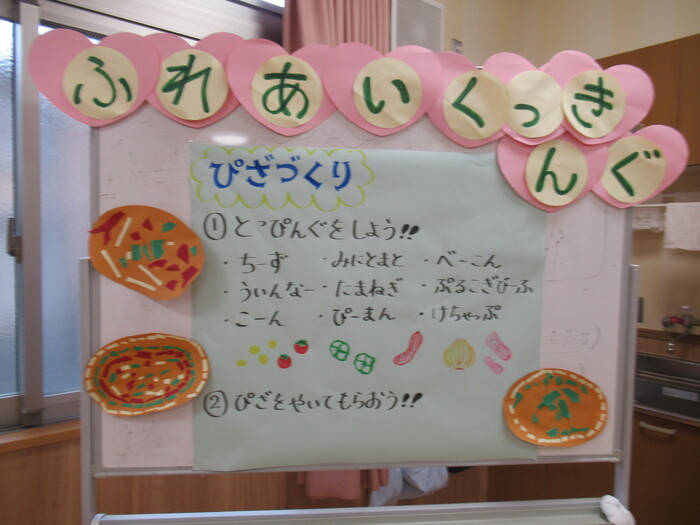 ふれあいくっきんぐ
ぴざづくり
① とっぴんぐをしよう!!
・ちーず ・みにとまと ・べーこん
・ういんなー ・たまねぎ ・ぷるこぎびーふ
・こーん ・ぴーまん ・けちゃっぷ
② ぴざをやいてもらおう!!